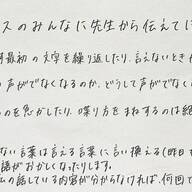 スのみんなに先生から伝えて
最初の文字を繰り返したり、言えないときが
の声がでなくなるのか、どうして声がでなく
のを急かしたり、喋り方をまねするのは絶
ない言葉は言える言葉に言い換える(昨日
語がおかしくなったりします。
の話している内容が分からなければ、何回